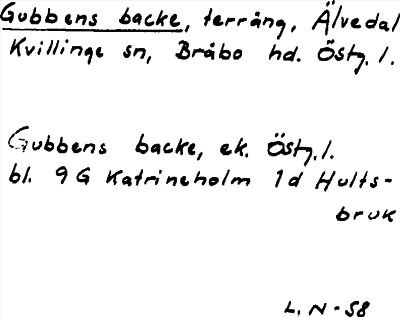 Gubbens backe, terräng, Älvedal
Kvillinge sn, Bråbo hd. Östg. l.
Gubbens backe, ek. Östg. l.
bl. 9 G Katrineholm 1 d Hults-
bruk
L. N-58